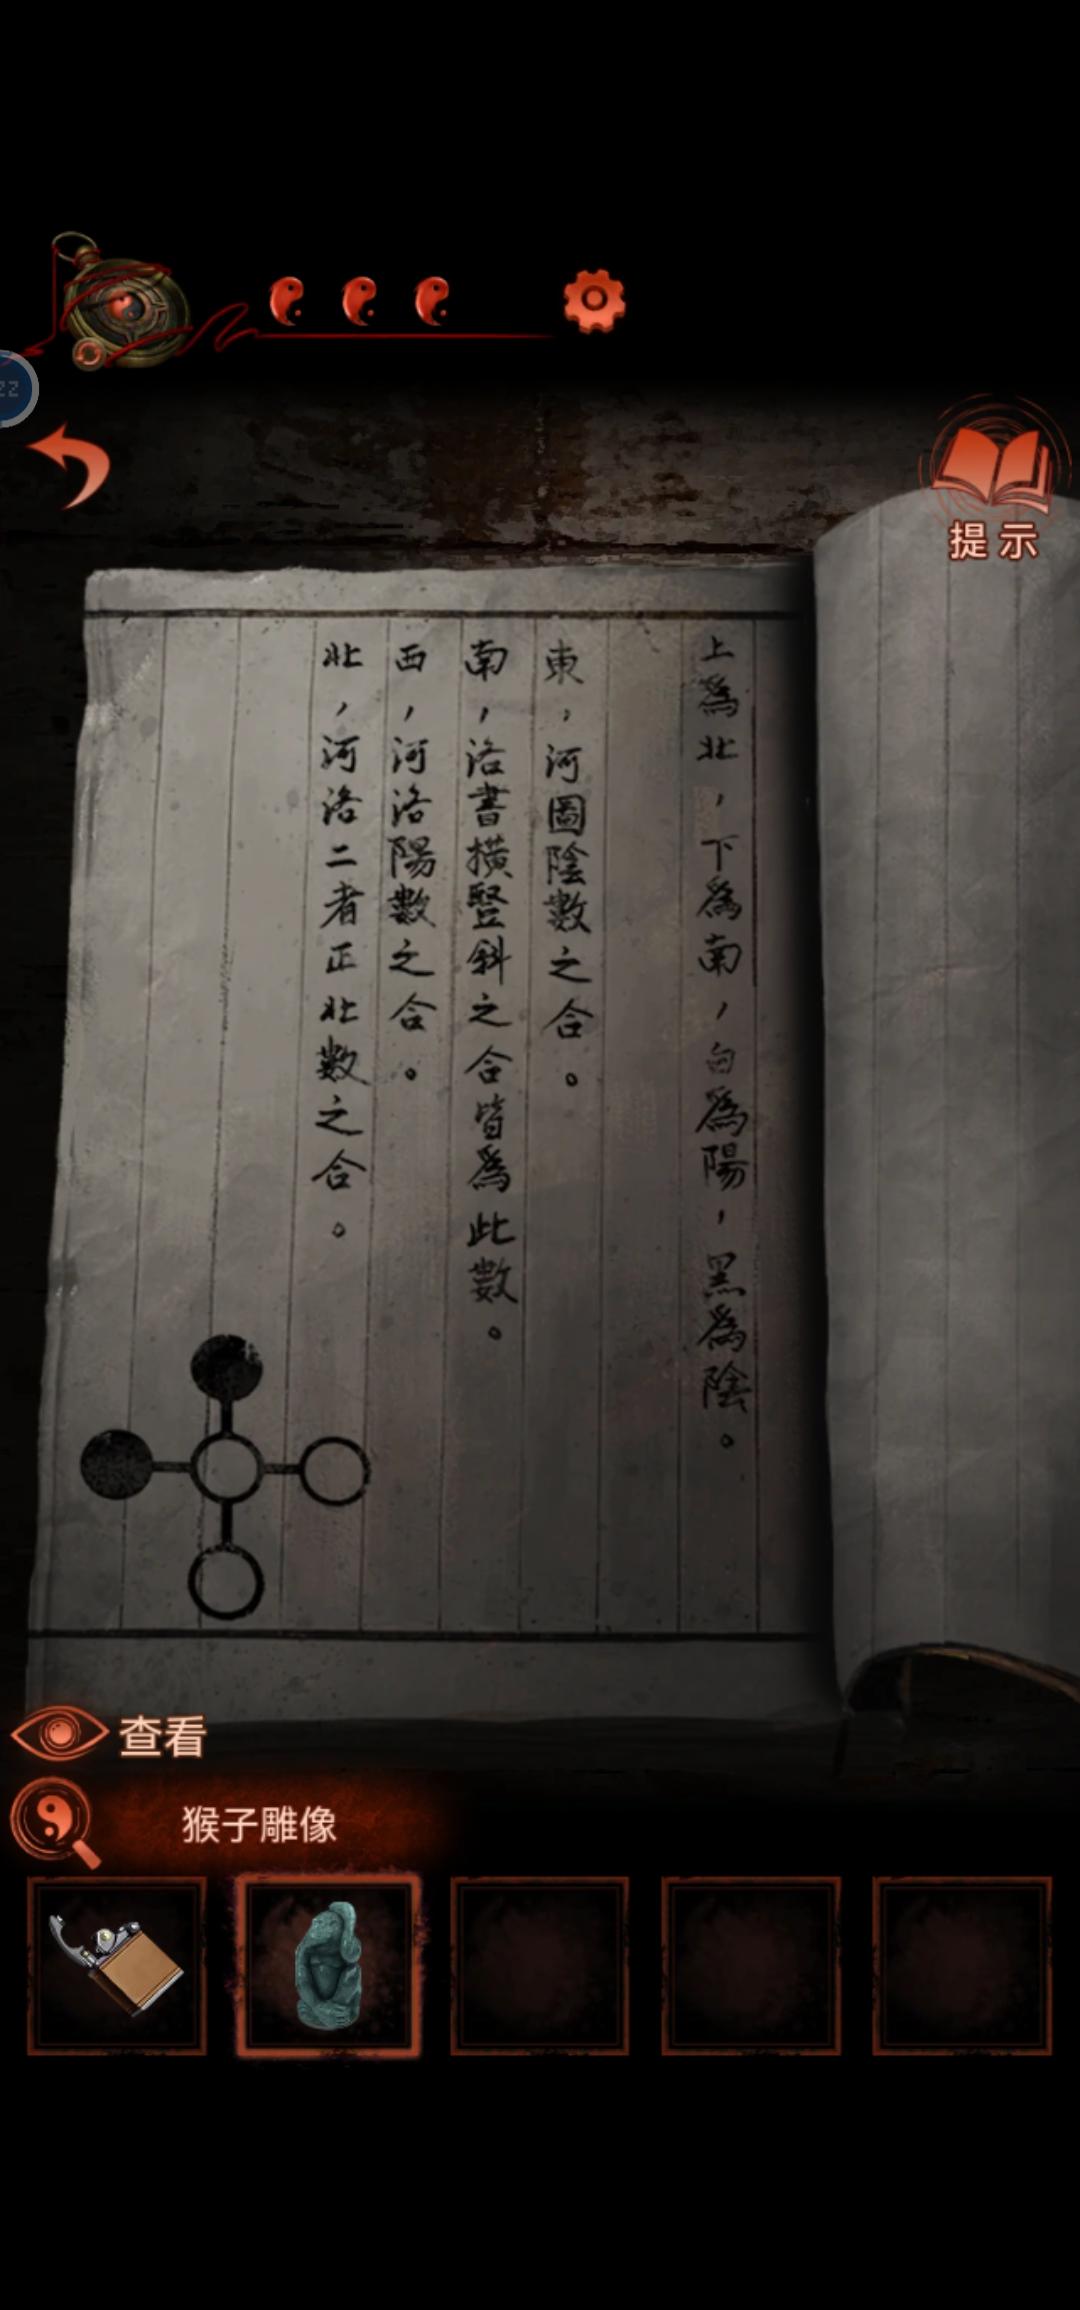 提示
上爲北，下爲南，白爲陽，黑爲陰。
東，河圖陰數之合。
南，洛書橫豎斜之合皆爲此數。
西，河洛陽數之合。
北，河洛二者正北數之合。
查看
猴子雕像